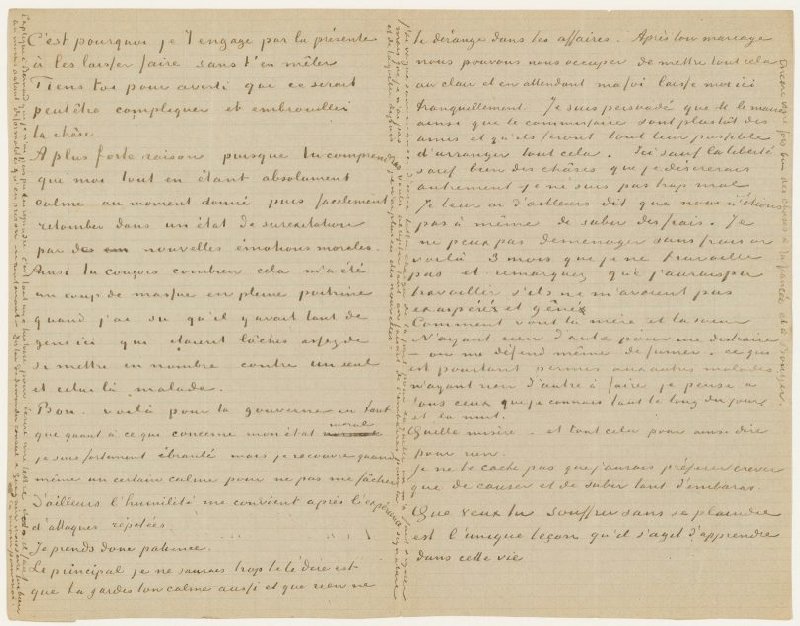 C'est pourquoi je t'engage par la présente
à les laisser faire sans t'en mêler
Tiens toi pour averti que ce serait
peutêtre compliquer et embrouiller
la chôse
A plus forte raison puisque tu comprendras
que moi tout en étant absolument
calme au moment donné puis facilement
retomber dans un état de surexcitation
par de nouvelles émotions morales.
Aussi tu conçois combien cela m'a été
un coup de massue en pleine poitrine
quand j'ai su qu'il y avait tant de
gens ici qui étaient lâches assez de
se mettre en nombre contre un seul
et celui là malade.
Bon. voilà pour ta gouverne en tant
que quant à ce que concerne mon état moral
je suis fortement ébranlé mais je recouvre quand
même un certain calme pour ne pas me fâcher
D'ailleurs l'humilité me convient après l'expérience
d'attaques répétées.
Je prends donc patience.
Le principal je ne saurais trop te le dire est
que tu gardes ton calme aussi et que rien ne
te dérange dans tes affaires. Après ton mariage
nous pouvons nous occuper de mettre tout cela
au clair et en attendant ma foi laisse moi ici
tranquillement. Je suis persuadé que M. le maire
ainsi que le commissaire sont plustôt des
amis et qu'ils feront tout leur possible
d'arranger tout cela. Ici sauf la liberté
sauf bien des chôses que je désirerais
autrement je ne suis pas trop mal
Je leur ai d'ailleurs dit que nous n'étions
pas à même de subir des frais. Je
ne peux pas déménager sans frais or
voilà 3 mois que je ne travaille
pas et remarquez que j'aurais pu
travailler s'ils ne m'avaient pas
exaspéré et gêné
Comment vont la mère et la soeur
N'ayant rien d'autre pour me distraire
– on me défend même de fumer – ce qui
est pourtant permis aux autres malades
n'ayant rien d'autre à faire je pense à
tous ceux que je connais tout le long du jour
et la nuit.
Quelle misère – et tout cela pour ainsi dire
pour rien.
Je ne te cache pas que j'aurais préféré crever
que de causer et de subir tant d'embaras.
Que veux tu souffrir sans se plaindre
est l'unique leçon qu'il s'agit d'apprendre
dans cette vie